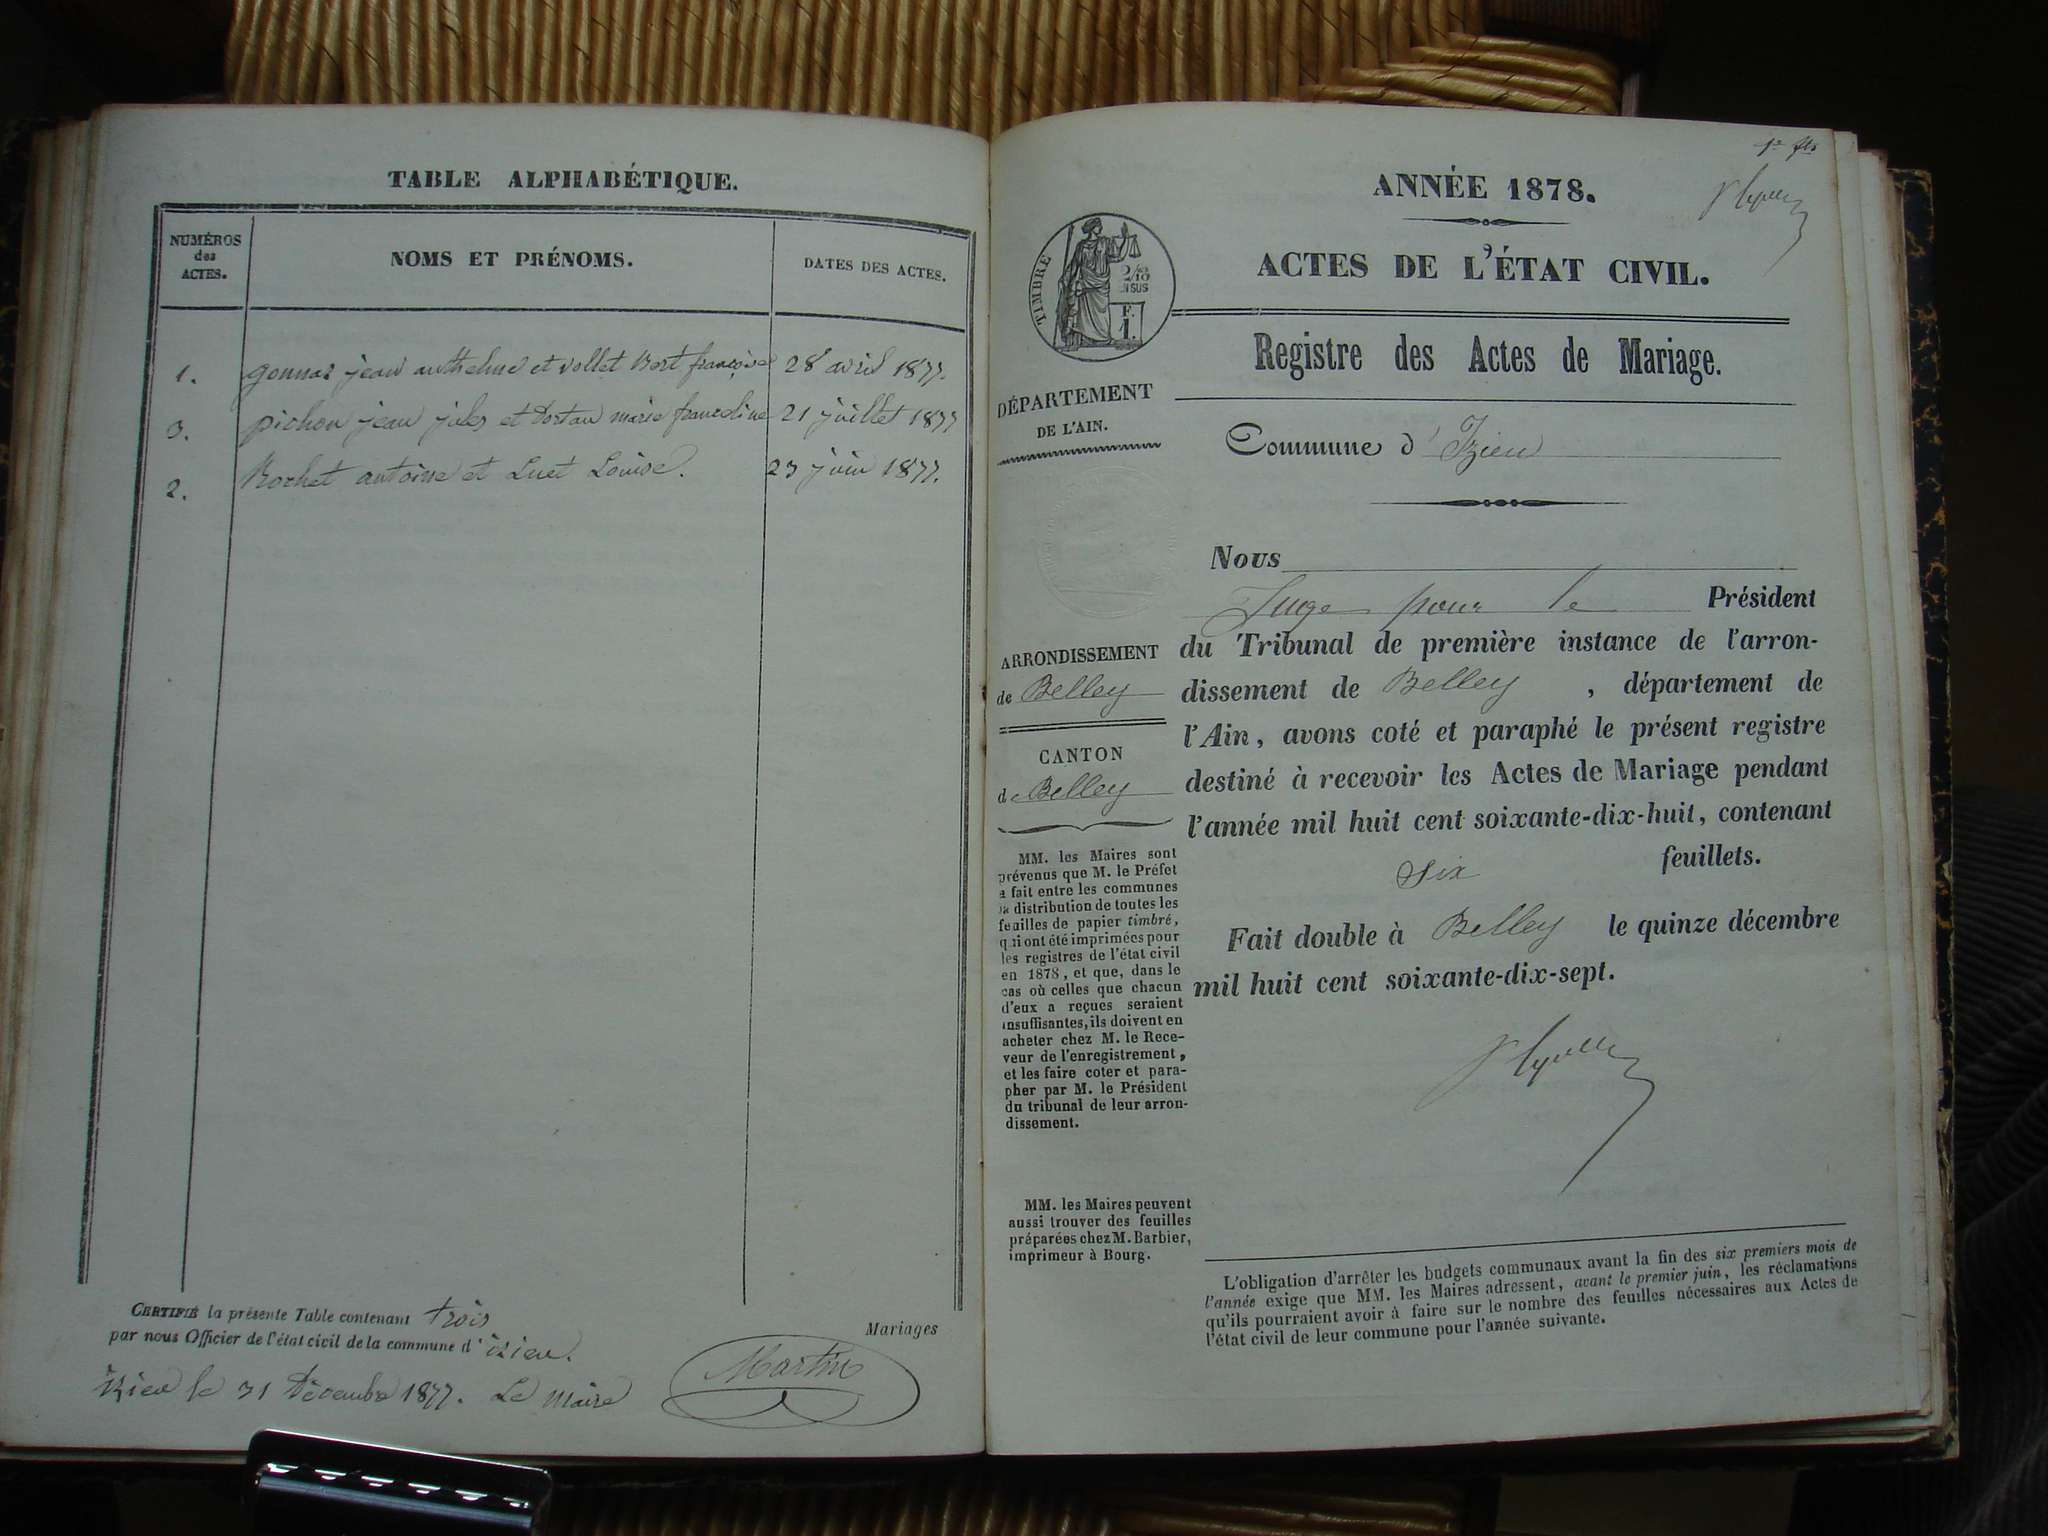 TABLE ALPHABÉTIQUE.
NUMÉROS
des
ACTES.
NOMS ET PRÉNOMS.
DATES DES ACTES.
1. jean anthelme et vollet françoise 28 avril 1877.
3. pichon jean jules et marie francoline 21 juillet 1877
2. Rochet antoine et Luet Louise. 23 juin 1877.
CERTIFIÉ la présente Table contenant trois
Mariages
par nous Officier de l'état civil de la commune d'izieu.
Izieu le 31 Décembre 1877. Le maire
Martin
ANNÉE 1878.
ACTES DE L'ÉTAT CIVIL.
TIMBRE
2/10
EN SUS
F.
1.
Registre des Actes de Mariage.
DÉPARTEMENT
DE L'AIN.
Commune d'Izieu
Nous
Juge pour le Président
du Tribunal de première instance de l'arron-
dissement de Belley , département de
l'Ain, avons coté et paraphé le présent registre
destiné à recevoir les Actes de Mariage pendant
l'année mil huit cent soixante-dix-huit, contenant
six feuillets.
Fait double à Belley le quinze décembre
mil huit cent soixante-dix-sept.
ARRONDISSEMENT
de Belley
CANTON
de Belley
MM. les Maires sont
prévenus que M. le Préfet
a fait entre les communes
la distribution de toutes les
feuilles de papier timbré,
qui ont été imprimées pour
les registres de l'état civil
en 1878, et que, dans le
cas où celles que chacun
d'eux a reçues seraient
insuffisantes, ils doivent en
acheter chez M. le Rece-
veur de l'enregistrement,
et les faire coter et para-
pher par M. le Président
du tribunal de leur arron-
dissement.
MM. les Maires peuvent
aussi trouver des feuilles
préparées chez M. Barbier,
imprimeur à Bourg.
L'obligation d'arrêter les budgets communaux avant la fin des six premiers mois de
l'année exige que MM. les Maires adressent, avant le premier juin, les réclamations
qu'ils pourraient avoir à faire sur le nombre des feuilles nécessaires aux Actes de
l'état civil de leur commune pour l'année suivante.